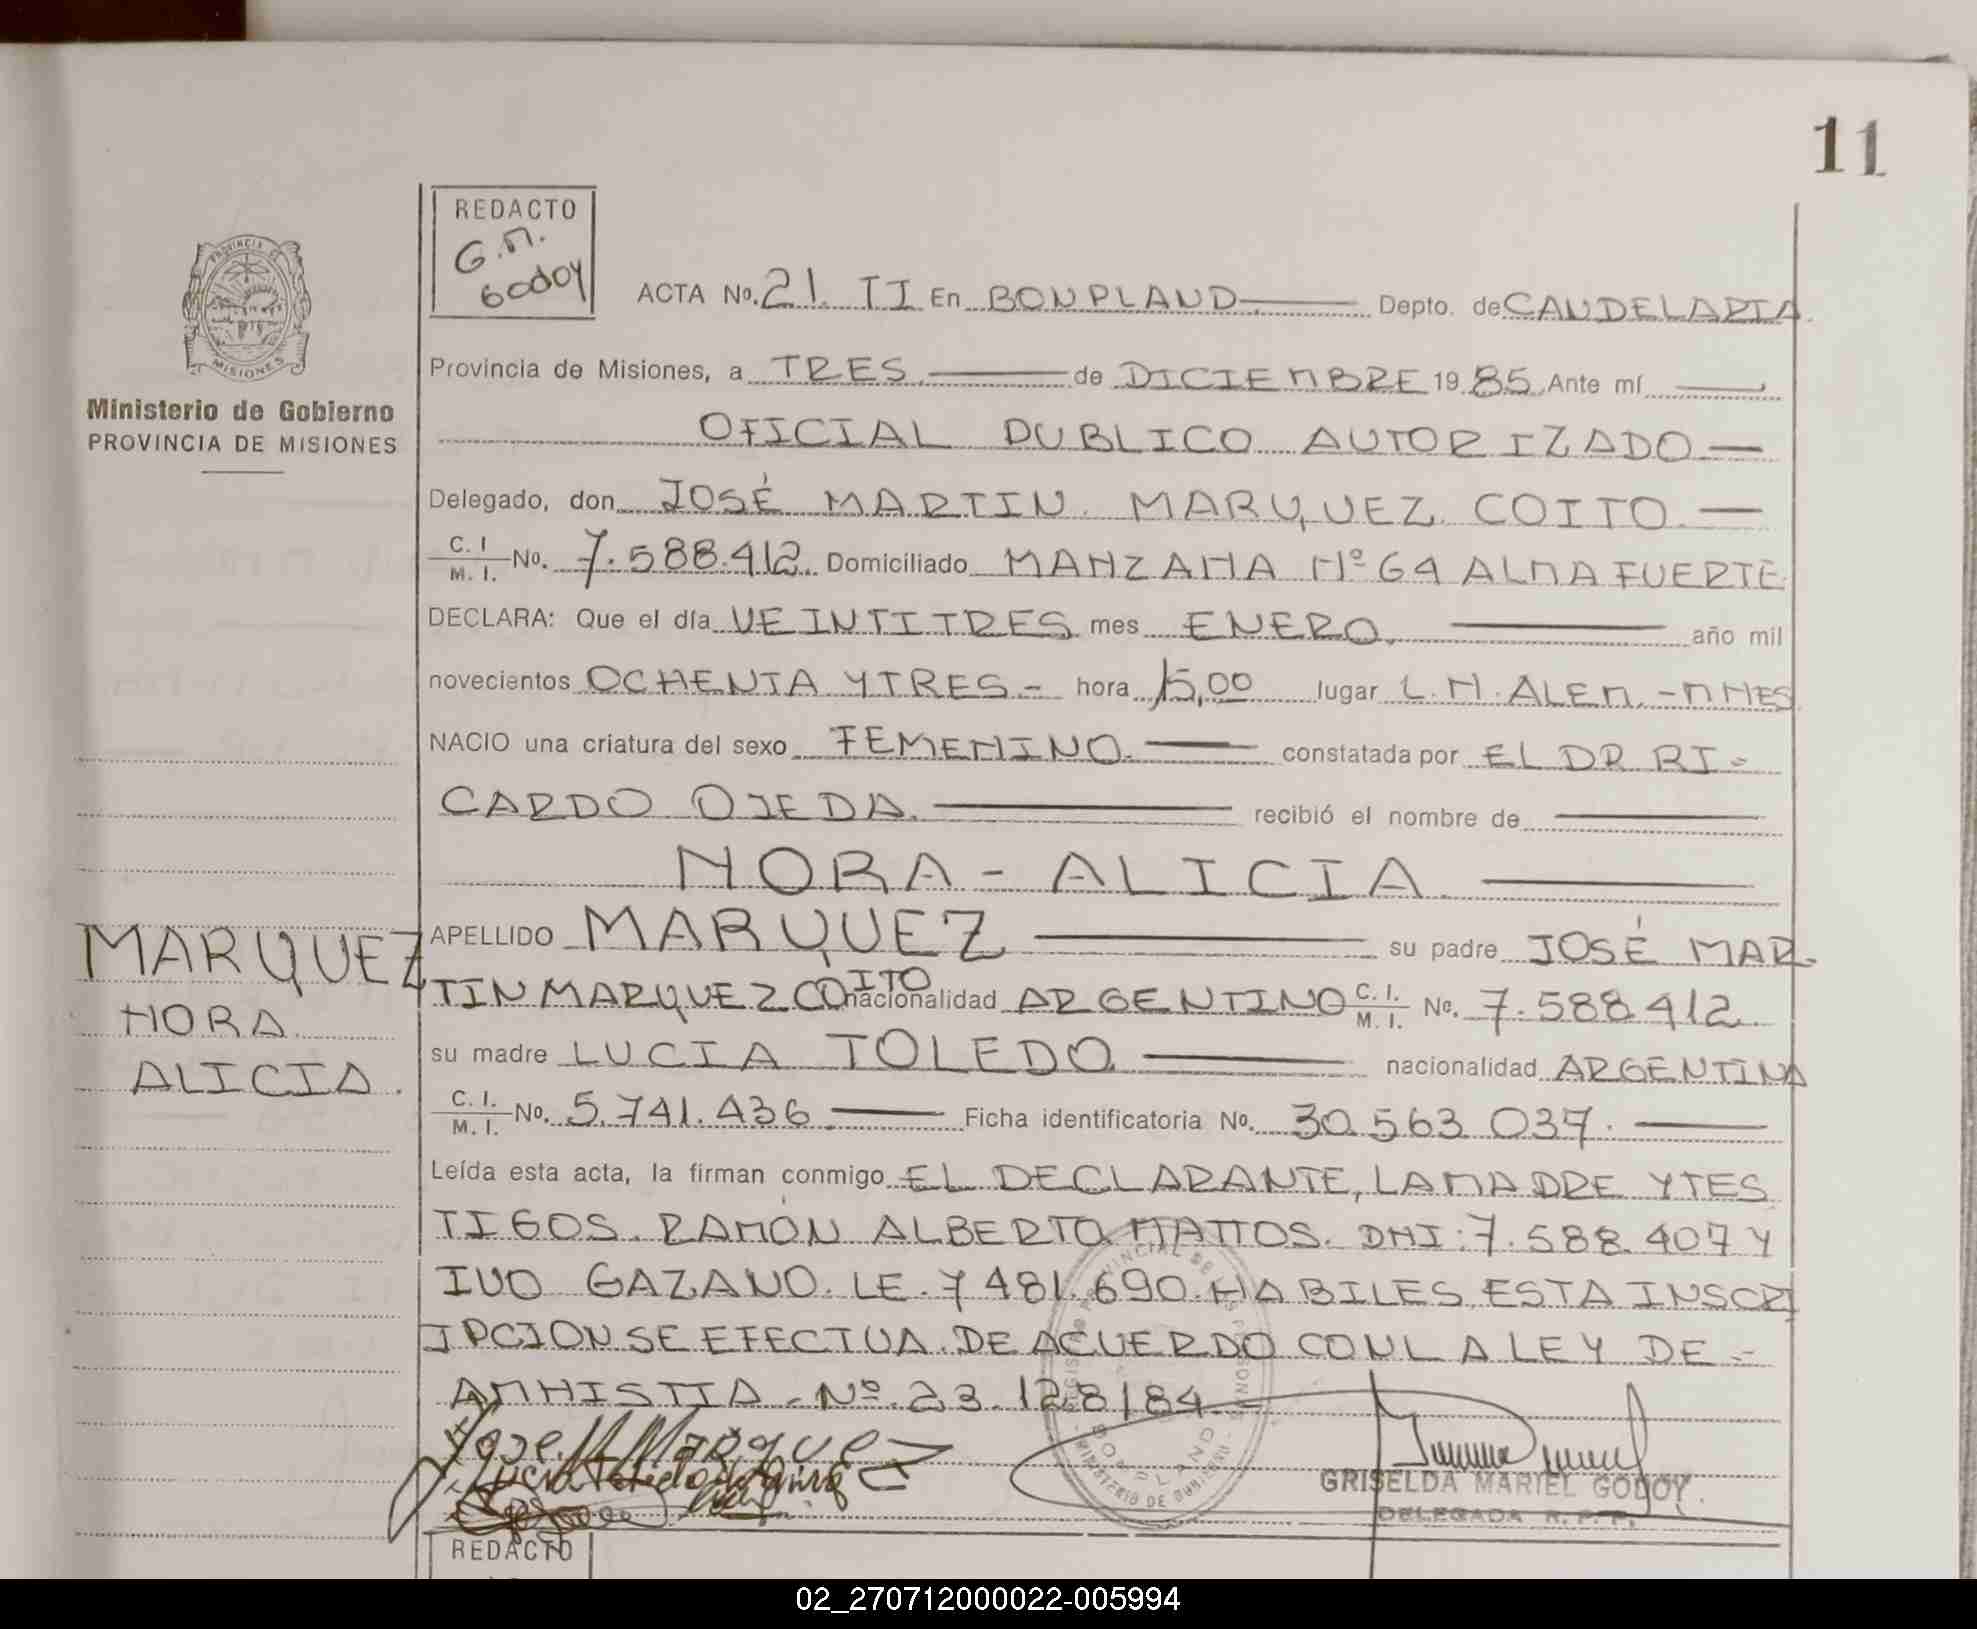 11
REDACTO
G.M.
GODOY
PROVINCIA DE
MISIONES
Ministerio de Gobierno
PROVINCIA DE MISIONES
ACTA No. 21. TI En BONPLAND. Depto. de CANDELARIA.
Provincia de Misiones, a TRES de DICIEMBRE 19 85 Ante mí
OFICIAL PUBLICO AUTORIZADO —
Delegado, don JOSÉ MARTIN. MARQUEZ COITO. —
C. I. / M. I. No. 7.588.412. Domiciliado MANZANA Nº 64 ALMAFUERTE
DECLARA: Que el día VEINTITRES mes ENERO. año mil
novecientos OCHENTA Y TRES - hora 15,00 lugar L. N. ALEM, - MNES
NACIO una criatura del sexo FEMENINO. constatada por EL DR RI-
CARDO OJEDA. recibió el nombre de
NORA - ALICIA.
APELLIDO MARQUEZ su padre JOSÉ MAR-
TIN MARQUEZ COITO nacionalidad ARGENTINO C. I. / M. I. No. 7.588 412
su madre LUCIA TOLEDO nacionalidad ARGENTINA
C. I. / M. I. No. 5.741.436 Ficha identificatoria No. 30.563 037.
Leída esta acta, la firman conmigo EL DECLARANTE, LA MADRE Y TES
TIGOS. RAMÓN ALBERTO MATTOS. DNI: 7.588.407 Y
IVO GAZANO. LE. 7 481.690. HABILES. ESTA INSCRI
IPCION SE EFECTUA. DE ACUERDO CON LA LEY DE -
AMNISTIA - Nº 23.128/84.
MARQUEZ
NORA
ALICIA.
Jose M Marquez
Lucia Toledo
BONPLAND
GRISELDA MARIEL GODOY
DELEGADA R. P. P.
REDACTO
02_270712000022-005994